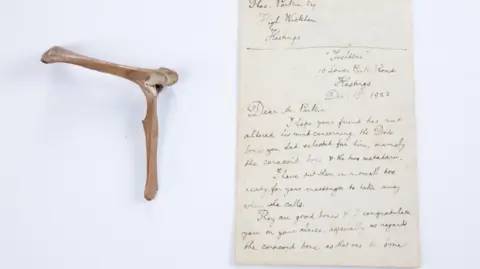 Thos. Parkin Esq
High Wickham
Hastings
10 Lower Park Road
Hastings
Dec. 1922
Dear Mr Parkin
I hope your friend has not
altered his mind concerning the Dodo
bones you had selected for him, namely
the coracoid bone & the two metatarsi.
I have put them in a small box
ready for your messenger to take away
when she calls.
They are good bones & I congratulate
you on your choice, especially as regards
the coracoid bone as that one is some